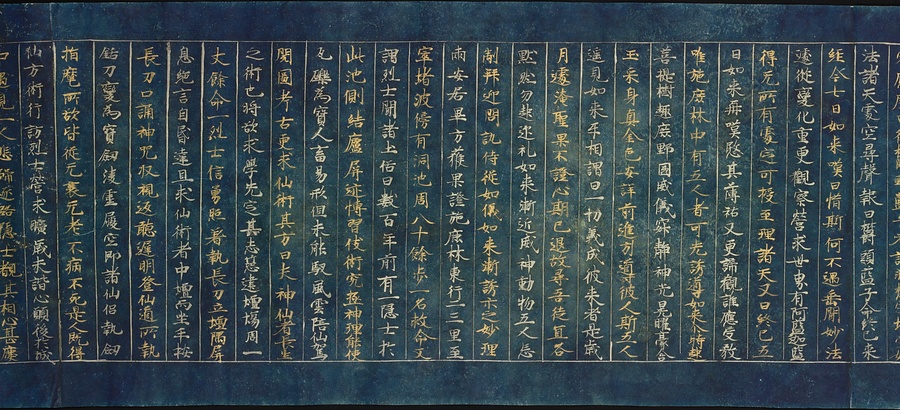 法諸天虛空尋聲報曰欝頭藍子命終已來
經今七日如來嘆曰惜斯何不遇垂聞妙法
遽從變化重更觀察營求世界有阿藍迦藍
得无所有處定可授至理諸天又曰終已五
日如來再嘆愍其薄祐又更諦觀誰應受教
唯施鹿林中有五人者可先誘導如來尒時起
菩提樹趣鹿野園威儀寂靜神光晃曜豪含
玉采身真金色安詳前進導彼五人斯五人
遙見如來互相謂曰一切義成彼來者是歲
月遽淹聖果不證心期已退故尋吾徒宜各
默然勿起迎礼如來漸近威神動物五人忘
制拜迎問訊侍從如儀如來漸誘示之妙理
兩安居畢方獲果證施鹿林東行二三里至
窣堵波傍有涸池周八十餘步一名救命又
謂烈士聞諸土俗曰數百年前有一隱士於
此池側結廬屏迹博習伎術究極神理能使
瓦礫為寶人畜易形但未能馭風雲陪仙駕
閱圖考古更求仙術其方曰夫神仙者長生
之術也將欲求學先定其志築建壇場周一
丈餘命一烈士信勇昭著執長刀立壇隅屏
息絕言自昏達旦求仙術者中壇而坐手按
長刀口誦神咒收視返聽遲明登仙道所執
銛刀變為寶劔淩虛履空即諸仙侶執劔
指麾所欲皆從无衰无老不病不死是人既得
仙方術行訪烈士營求曠歲未諧心願後於城
中遇見一人悲號逐路隱士覩其相心甚慶